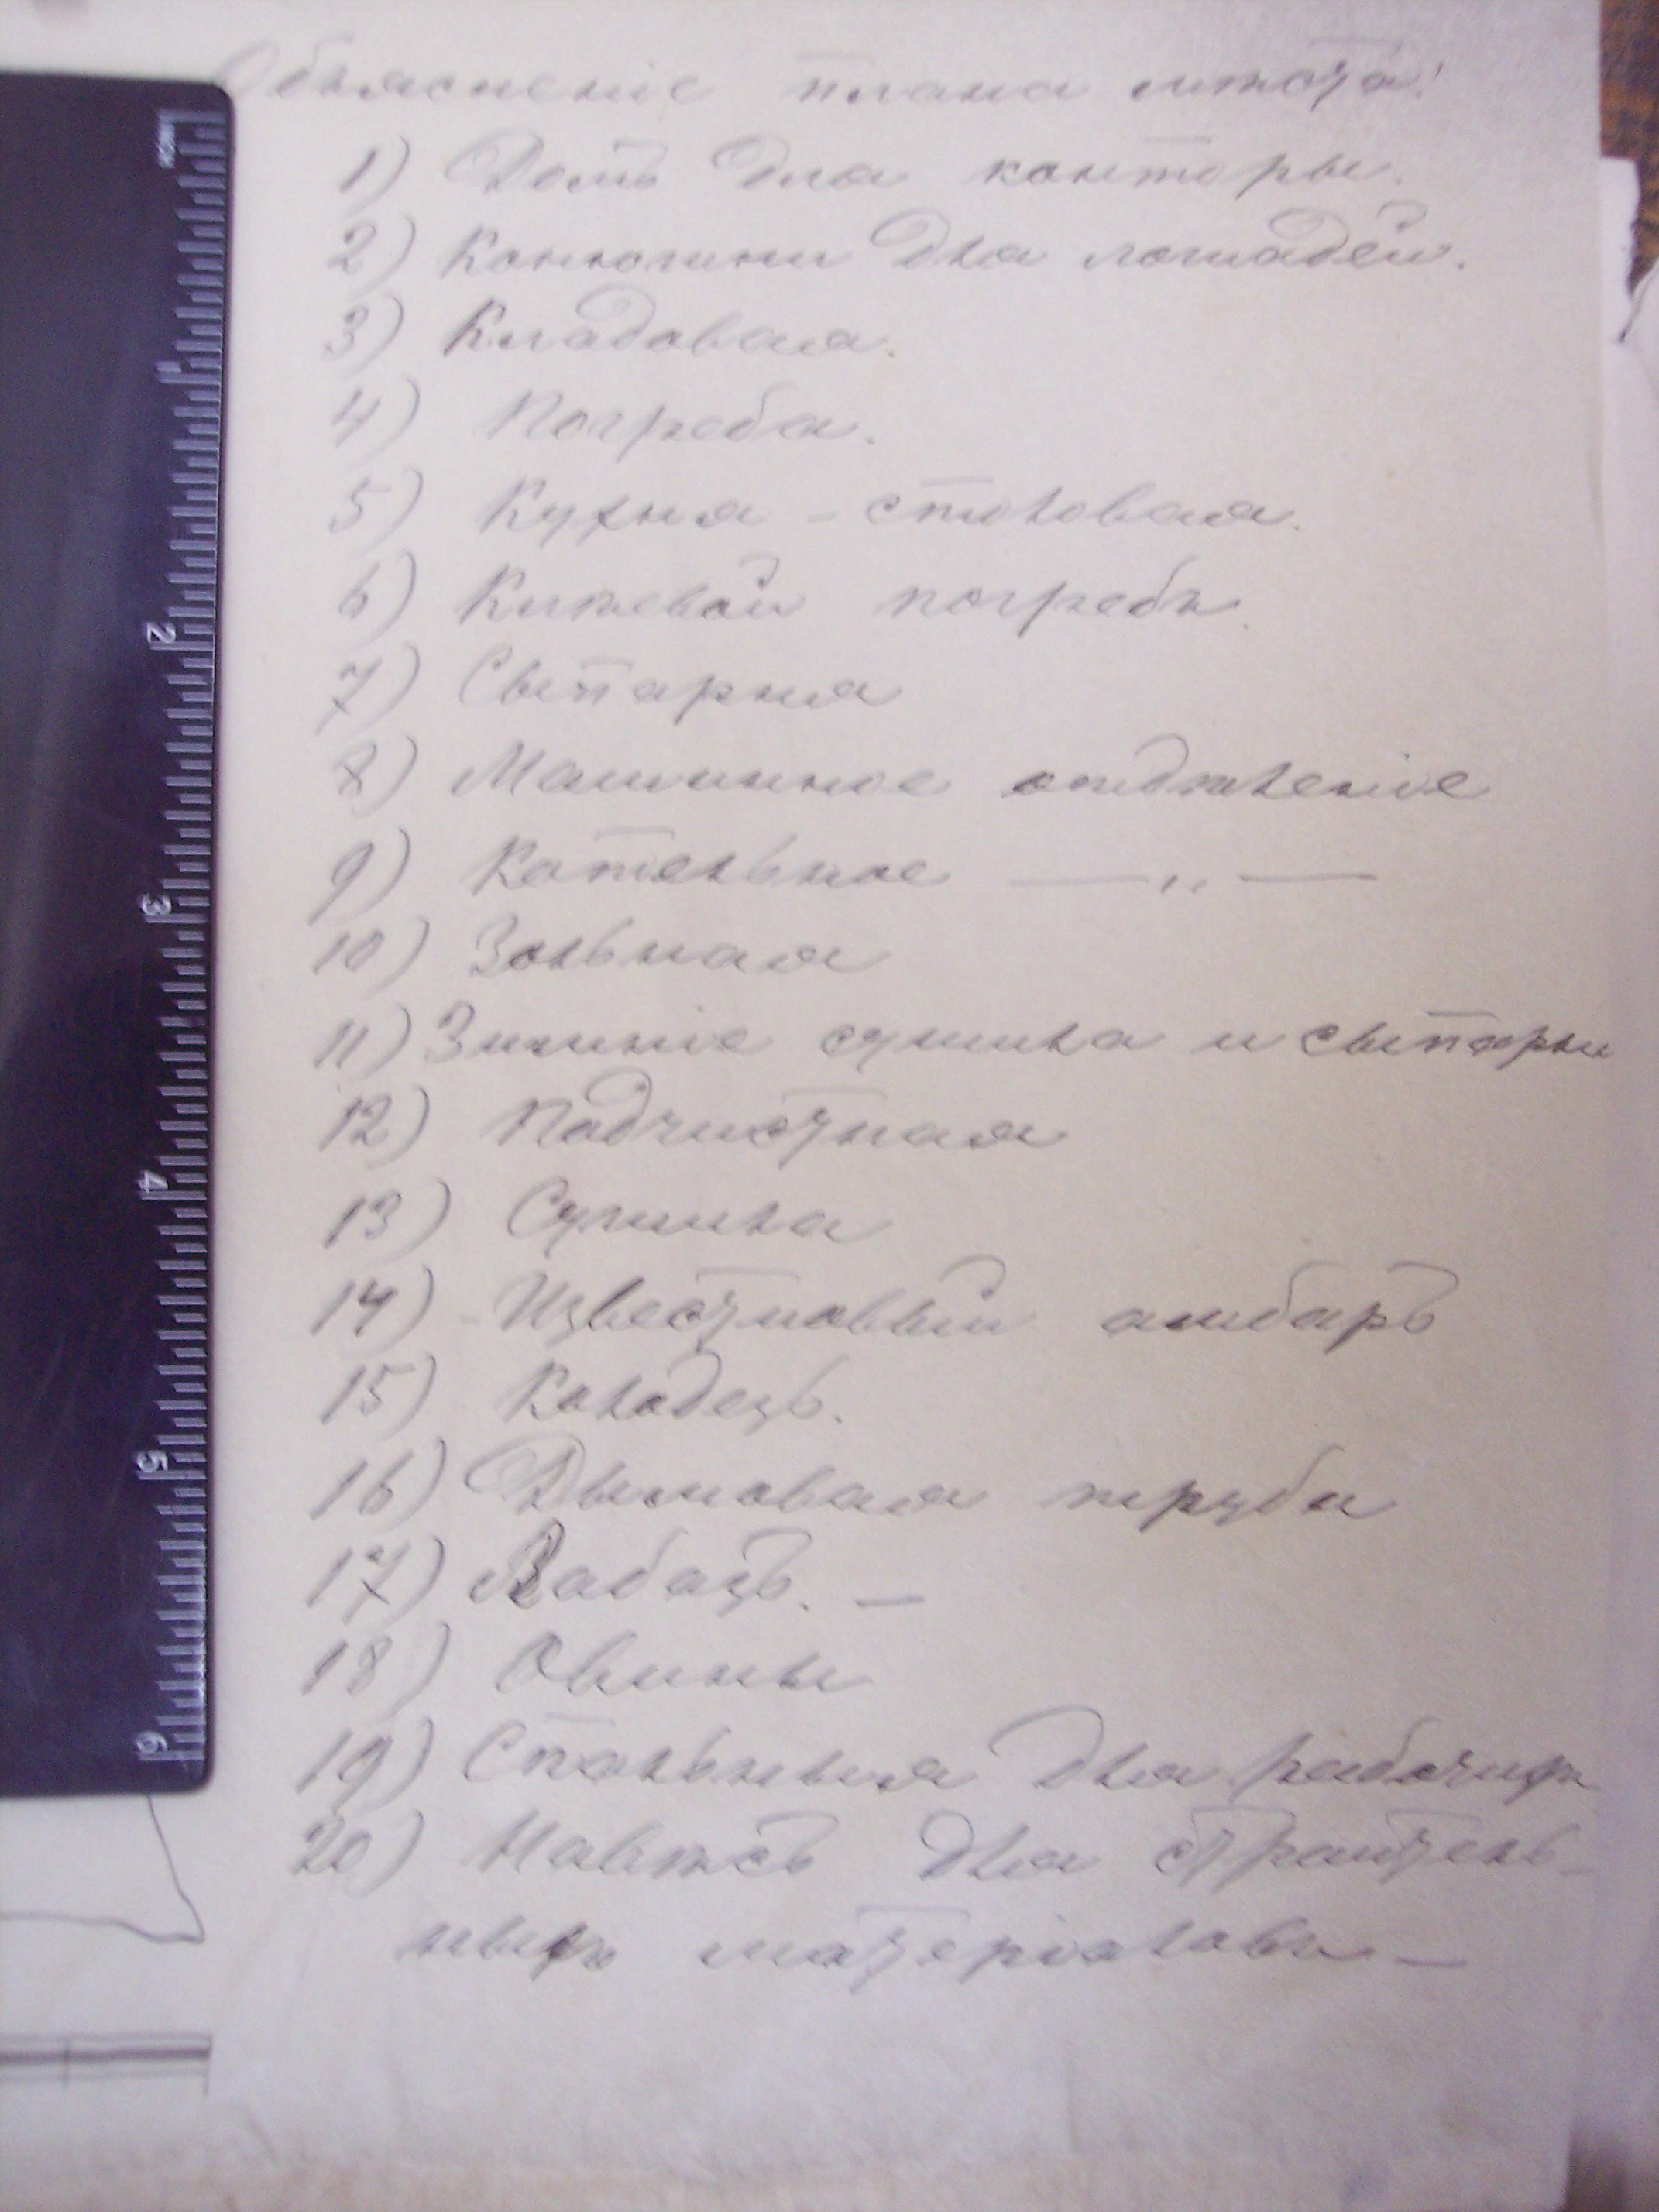 Объясненіе плана мѣста:
1) Домъ для конторы.
2) Конюшни для лошадей.
3) Кладовая.
4) Погреба.
5) Кухня - столовая.
6) погребъ.
7) Сыпарня
8) Машинное отдѣленіе
9) Котельное — „ —
10) Зольная
11) Зимніе сушила и сыпарни
12) Подчистная
13) Сушила
14) Известковый амбаръ
15) Колодецъ.
16) Дымовая труба
17) Лабазъ. —
18) Овины
19) Спальныя для рабочихъ
20) Навѣсъ для строитель-
ныхъ матеріаловъ —
2
3
4
5
6